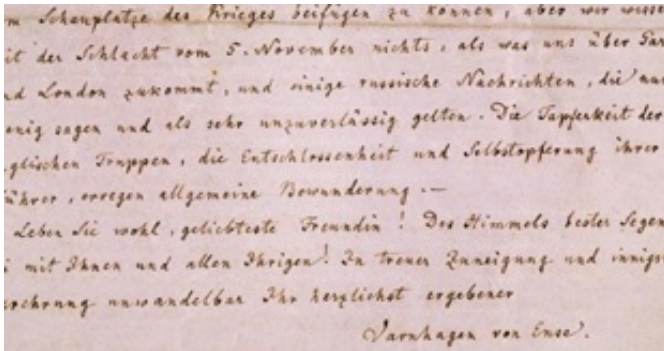 m Schauplatze des Krieges beifügen zu können, aber wir wisse
it der Schlacht vom 5. November nichts, als was uns über Par
nd London zukommt, und einige russische Nachrichten, die nur
enig sagen und als sehr unzuverlässig gelten. Die Tapferkeit der
glischen Truppen, die Entschlossenheit und Selbstopferung ihrer
ührer, erregen allgemeine Bewunderung. —
Leben Sie wohl, geliebteste Freundin! Des Himmels bester Segen
i mit Ihnen und allen Ihrigen! In treuer Zuneigung und innigs
erehrung unwandelbar Ihr herzlichst ergebener
Varnhagen von Ense.